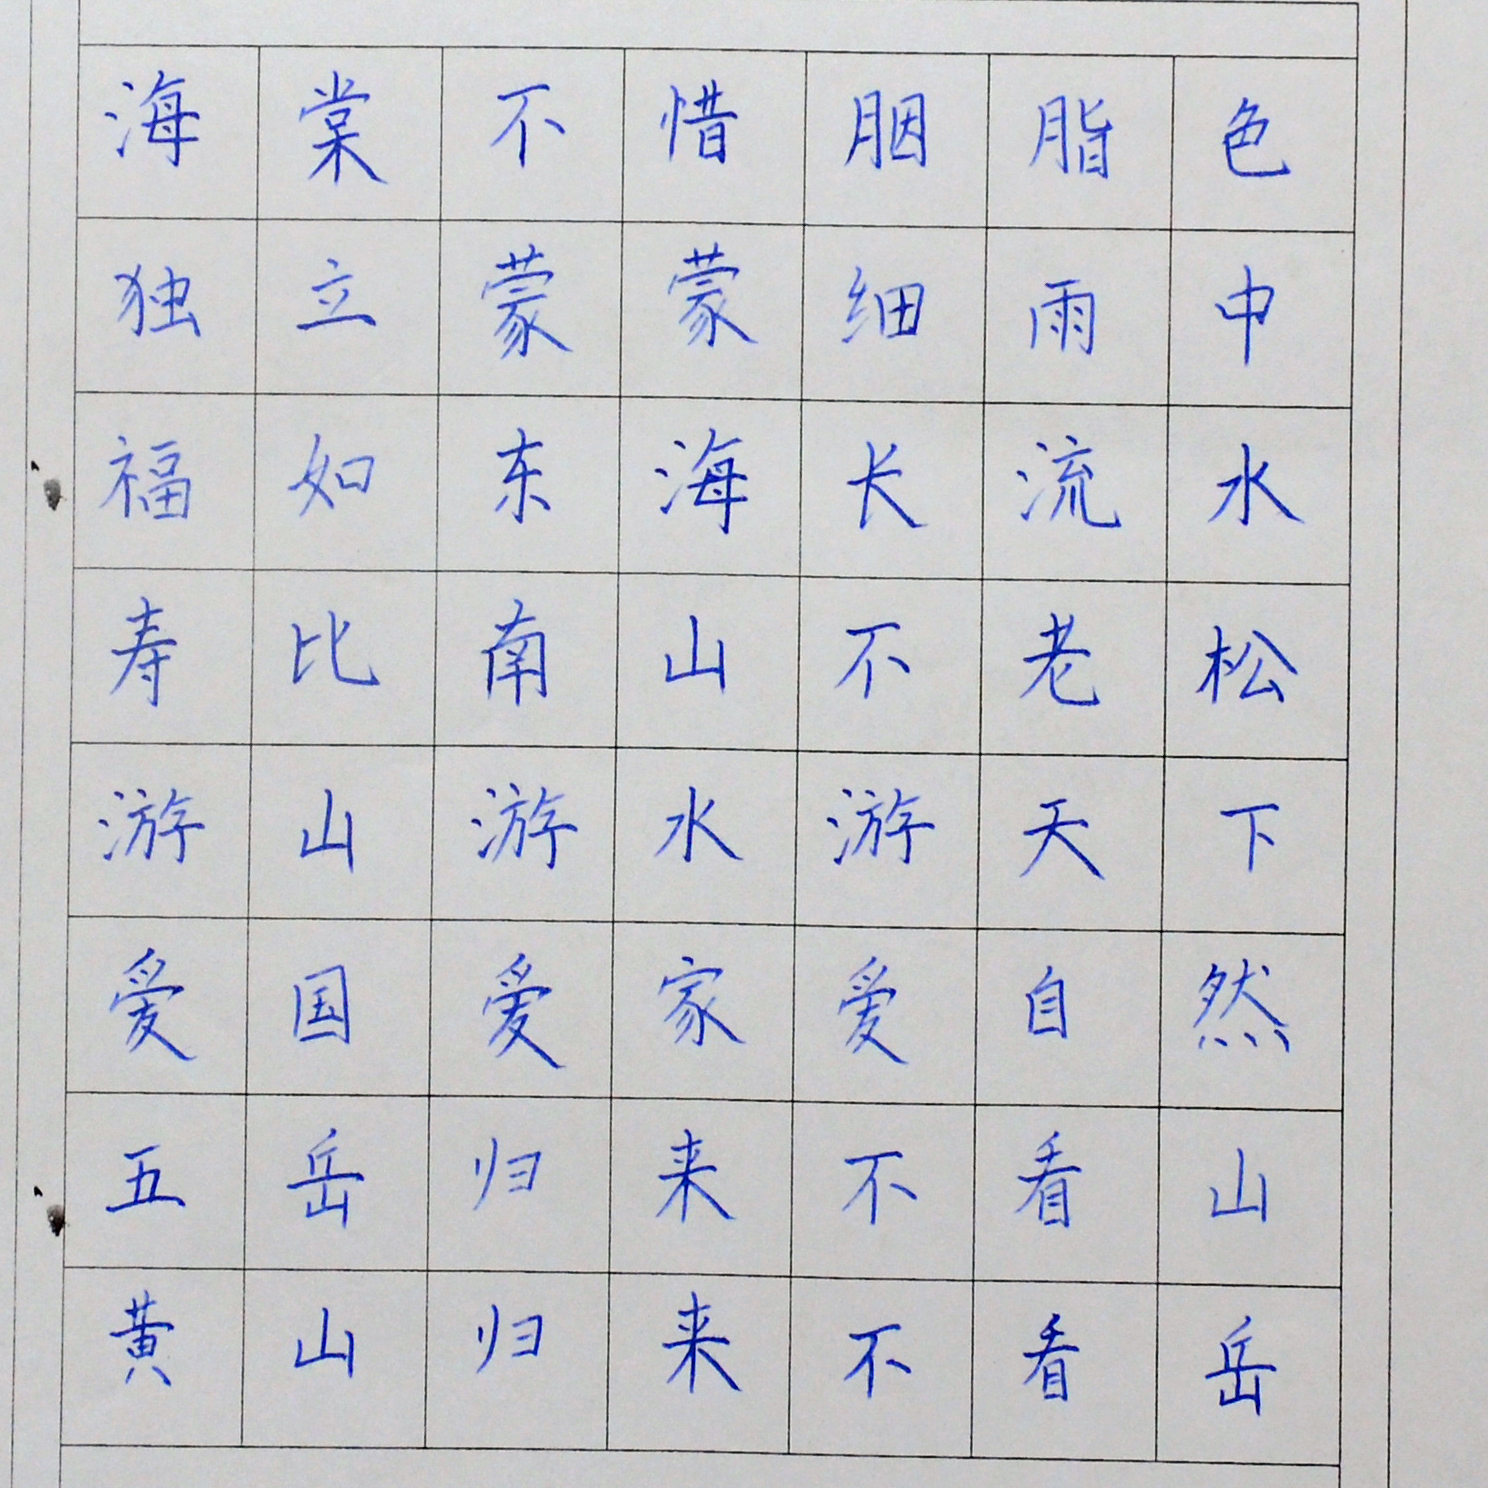 海棠不惜胭脂色
独立蒙蒙细雨中
福如东海长流水
寿比南山不老松
游山游水游天下
爱国爱家爱自然
五岳归来不看山
黄山归来不看岳